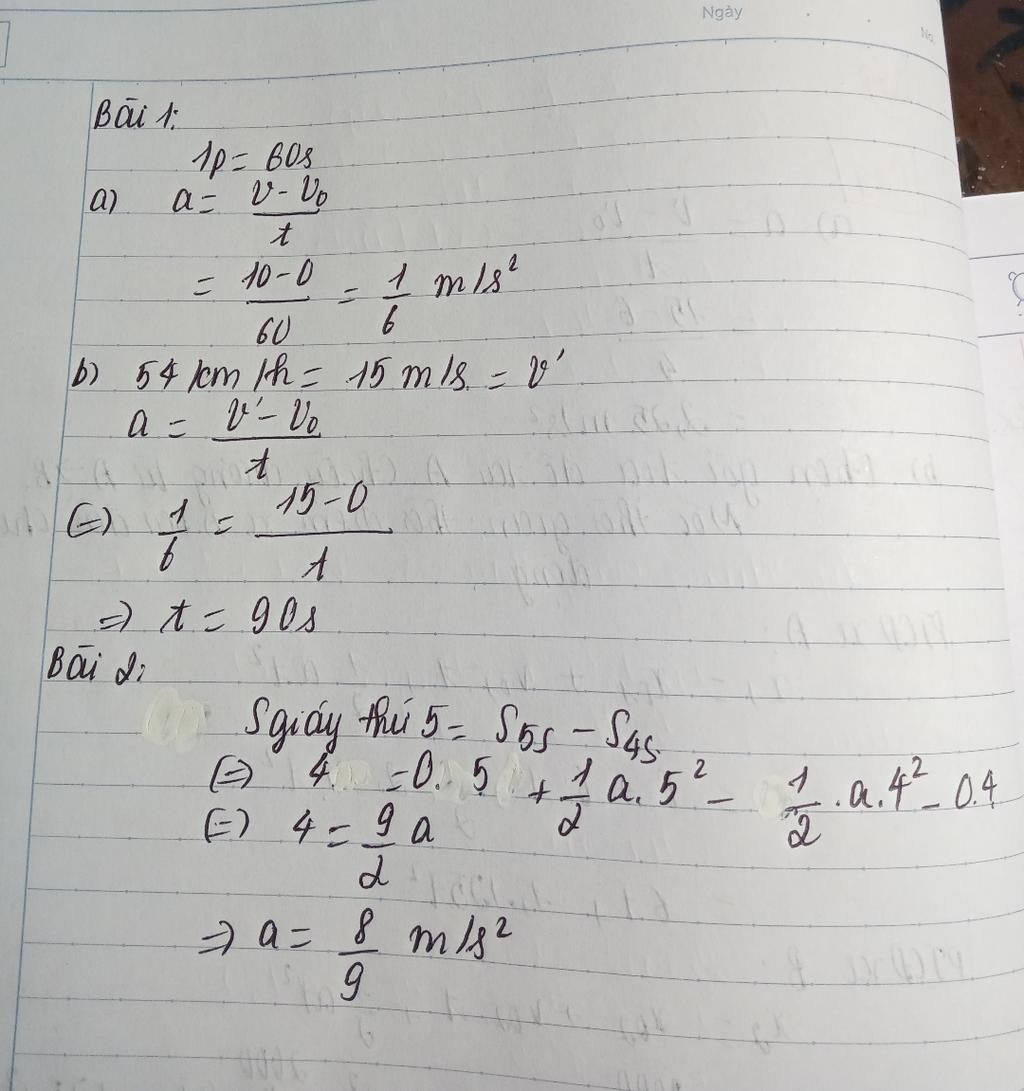 Ngày
No.
Bài 1:
1p = 60s
a) a = \frac{v - v_0}{t}
= \frac{10 - 0}{60} = \frac{1}{6} m/s²
b) 54 km/h = 15 m/s = v'
a = \frac{v' - v_0}{t}
(=) \frac{1}{6} = \frac{15 - 0}{t}
=> t = 90s
Bài 2:
S giây thứ 5 = S_{5s} - S_{4s}
(=) 4 = 0.5 + \frac{1}{2} a.5² - \frac{1}{2}.a.4² - 0.4
(=) 4 = \frac{9}{2} a
=> a = \frac{8}{9} m/s²